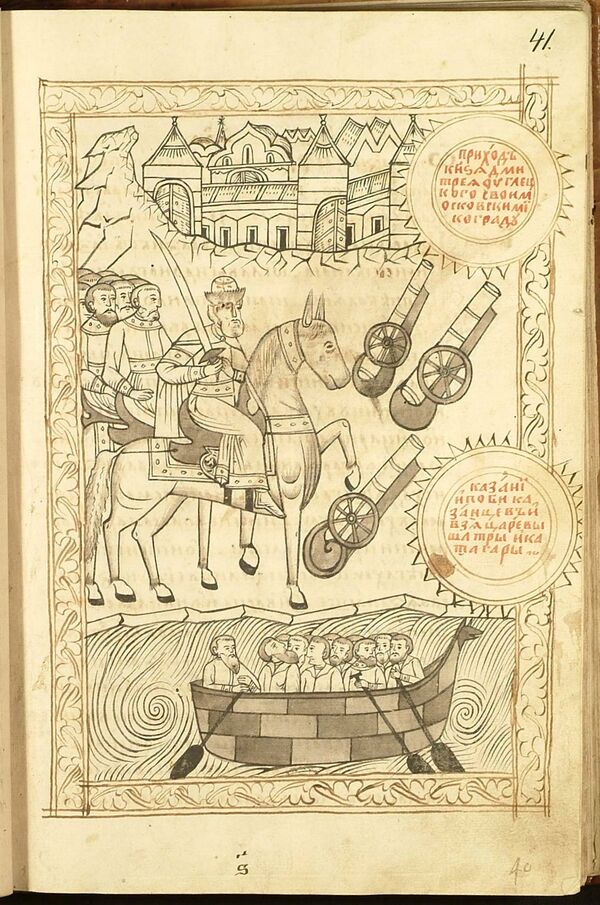 41.
ПРИХОДЪ
КНЅАДМИ
ТРЕѦѺУГЛЕЦ
КОГО СВОИМ
ОСКОВСКИМЇ
КОГРАДꙊ
КАЗАНЇ
ИПОБИКА
ЗАНЦЕВЪИ
ВЗЯЦАРЕВЫ
ШАТРЫ ИКА
ТАГАРЫ
Ѕ
40